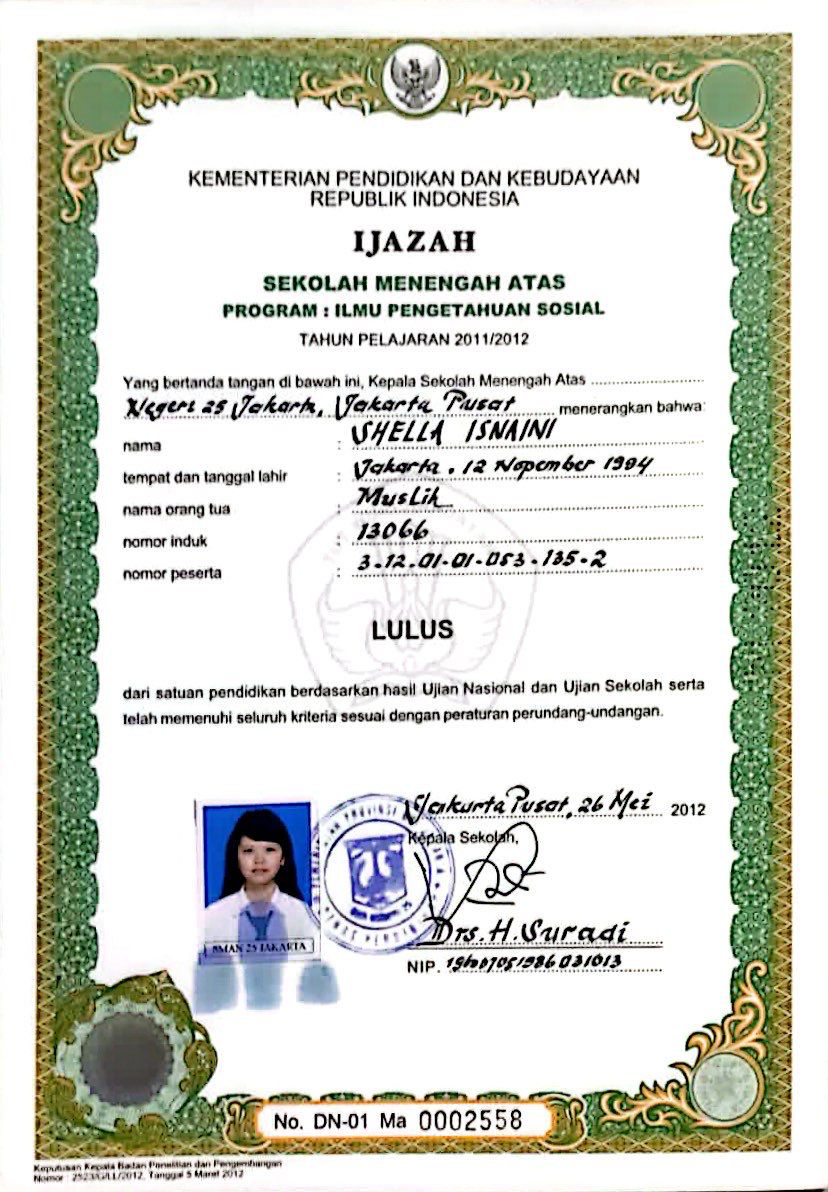 KEMENTERIAN PENDIDIKAN DAN KEBUDAYAAN
REPUBLIK INDONESIA
IJAZAH
SEKOLAH MENENGAH ATAS
PROGRAM : ILMU PENGETAHUAN SOSIAL
TAHUN PELAJARAN 2011/2012
Yang bertanda tangan di bawah ini, Kepala Sekolah Menengah Atas
Negeri 25 Jakarta, Jakarta Pusat menerangkan bahwa:
nama : SHELLA ISNAINI
tempat dan tanggal lahir : Jakarta, 12 Nopember 1994
nama orang tua : Muslih
nomor induk : 13066
nomor peserta : 3-12-01-01-053-135-2
LULUS
dari satuan pendidikan berdasarkan hasil Ujian Nasional dan Ujian Sekolah serta
telah memenuhi seluruh kriteria sesuai dengan peraturan perundang-undangan.
Jakarta Pusat, 26 Mei 2012
Kepala Sekolah,
SMAN 25 JAKARTA
Drs. H. Suradi
NIP.
No. DN-01 Ma 0002558
Keputusan Kepala Badan Penelitian dan Pengembangan
Nomor : Tanggal 5 Maret 2012